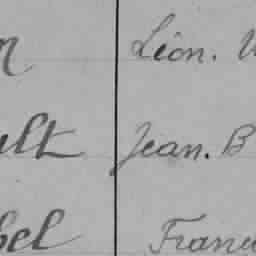 n Léon. V
ult Jean. B
bel Franc